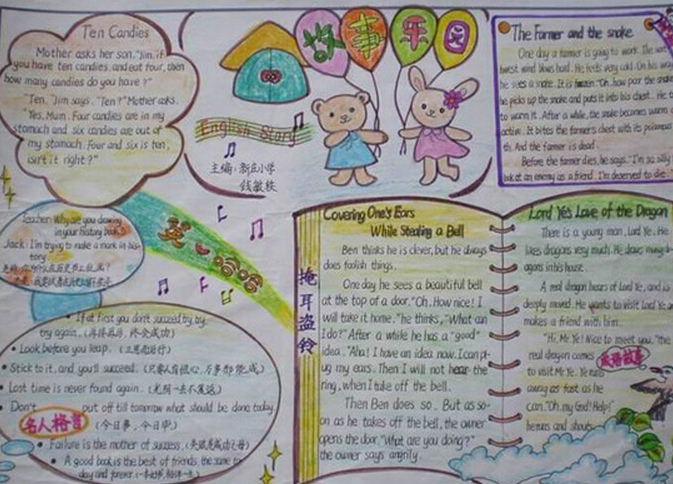 Ten Candies
Mother asks her son, "Jim, if
you have ten candies, and eat four, then
how many candies do you have?"
"Ten." Jim says. "Ten?" Mother asks.
"Yes, Mum. Four candies are in my
stomach and six candies are out of
my stomach. Four and six is ten,
isn't it right?"
故事乐园
English Story
主编:新庄小学
钱敏轶
The Farmer and the snake
One day a farmer is going to work. The
wind blows hard. He feels very cold. On his way
he sees a snake. It is frozen. "Oh, poor
he picks up the snake and puts it into his chest.
to warm it. After a while, the snake becomes warm
active. It bites the farmer's chest with its poisonous
th. And the farmer is dead.
Before the farmer dies, he says, "I'm so silly
an enemy as a friend. I'm deserved to die."
Teacher: Why are you drawing
in your history book?
Jack: I'm trying to make a mark in his
tory.
英
If at first you don't succeed, try, try,
try again. (再接再厉,终会成功)
Look before you leap. (三思而后行)
Stick to it, and you'll succeed. (只要人有恒心,万事都能成)
Lost time is never found again. (光阴一去不复返)
Don't put off till tomorrow what should be done today.
名人格言 (今日事,今日毕)
Failure is the mother of success. (失败是成功之母)
A good book is the best of friends, the same to
day and forever.
掩耳盗铃
Covering One's Ears
While Stealing a Bell
Ben thinks he is clever, but he always
does foolish things.
One day he sees a beautiful bell
at the top of a door. "Oh, How nice! I
will take it home." he thinks, "What can
I do?" After a while he has a "good"
idea. "Aha! I have an idea now. I can pl-
ug my ears. Then I will not hear the
ring, when I take off the bell.
Then Ben does so. But as so-
on as he takes off the bell, the owner
opens the door. "What are you doing?"
the owner says angrily.
Lord Ye's Love of the Dragon
There is a young man, Lord Ye. He
likes dragons very much. He draws many dr-
agons in his house.
A real dragon hears of Lord Ye, and is
deeply moved. He wants to visit Lord Ye and
makes a friend with him.
"Hi, Mr Ye! Nice to meet you," the
real dragon comes 成语故事
to visit Mr Ye. Ye runs
away as fast as he
can. "Oh, my God! Help!"
he runs and shouts.